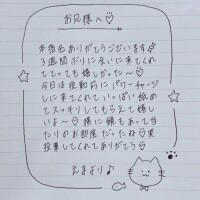 お兄様へ♡
本指名ありがとうございます
3週間ぶりに会いに来てくれ
てとっても嬉しかった〜♡
今日は出勤前にパワーチャージ
しに来てくれていっぱい舐め
てスッキリしてもらえて嬉し
いよ〜♡横に鏡もあって当
たりのお部屋だったね♡実
授業してくれてありがとう♡
えまより♪